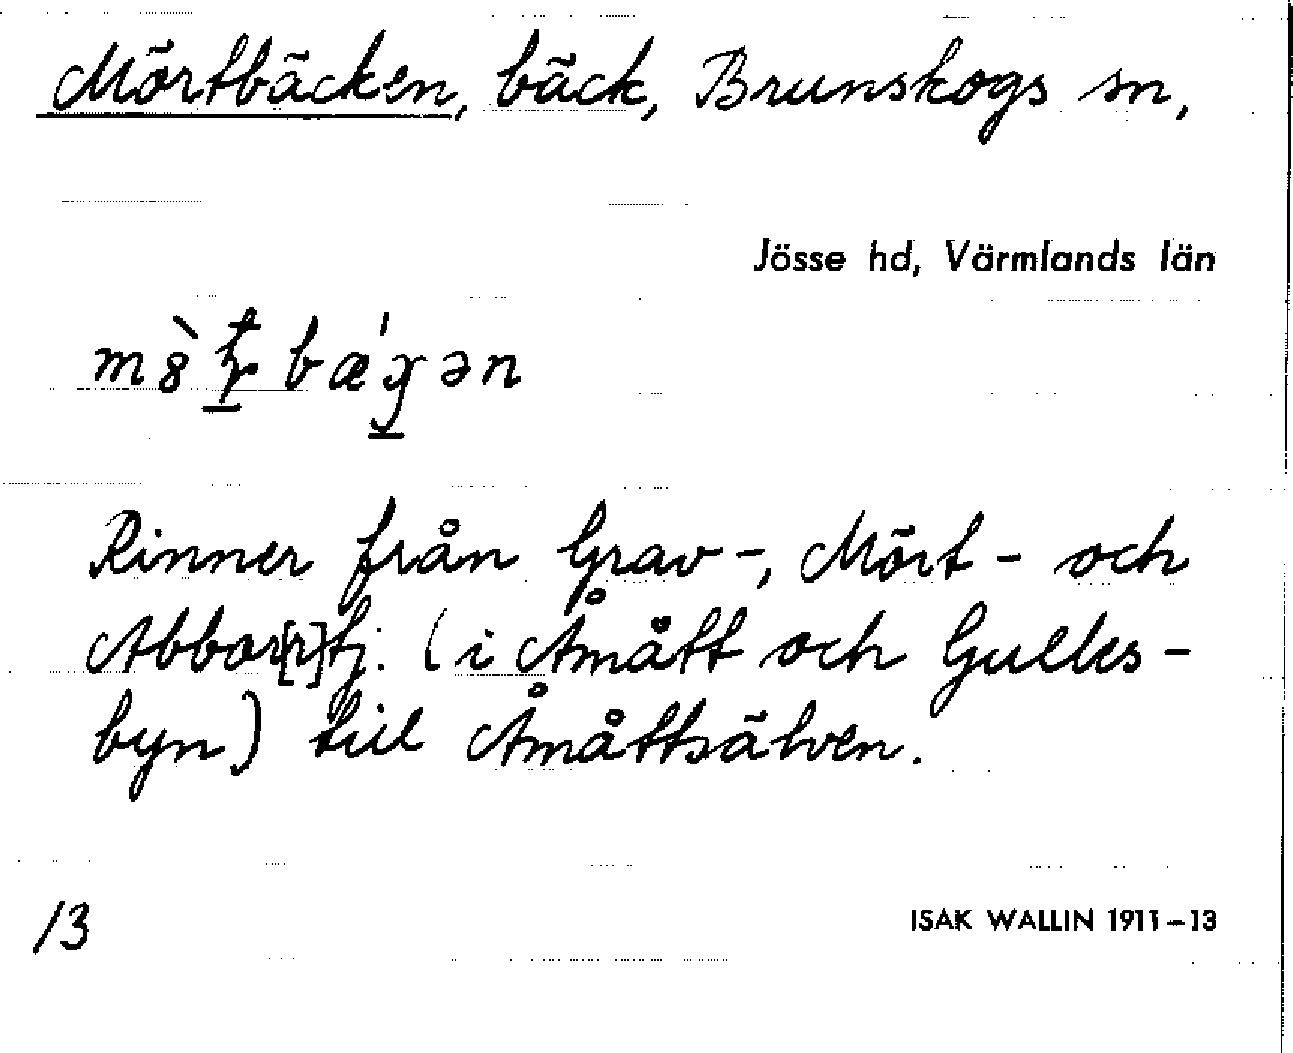 Mörtbäcken, bäck, Brunskogs sn,
Jösse hd, Värmlands län
Rinner från Grav-, Mört- och
Abbor[r]tj. (i Åmått och Gulles-
byn) till Åmåttsälven.
13
ISAK WALLIN 1911-13